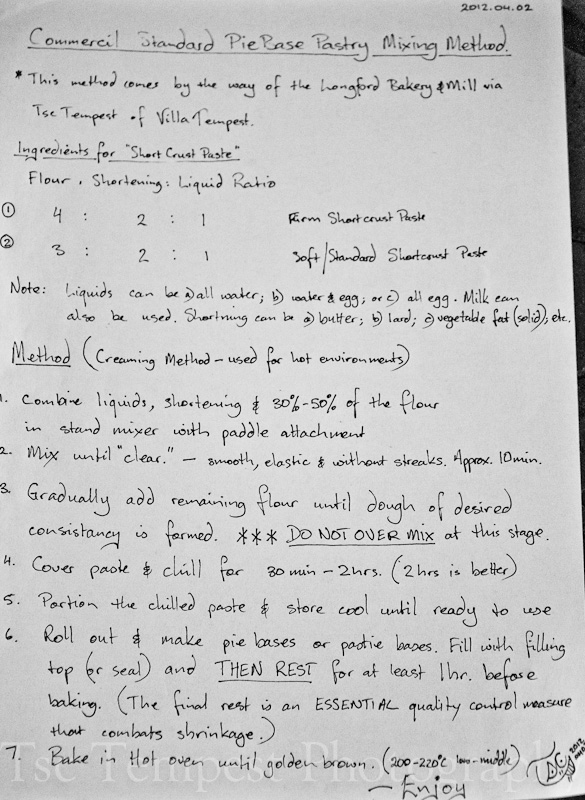 2012.04.02
Commercil Standard Pie Base Pastry Mixing Method.
* This method comes by the way of the Longford Bakery & Mill via
Tsc Tempest of Villa Tempest.
Ingredients for "Short Crust Paste"
Flour : Shortening : Liquid Ratio
① 4 : 2 : 1 Firm Shortcrust Paste
② 3 : 2 : 1 Soft/Standard Shortcrust Paste
Note: Liquids can be a) all water; b) water & egg; or c) all egg. Milk can
also be used. Shortning can be a) butter; b) lard; c) vegetable fat (solid); etc.
Method (Creaming Method - used for hot environments)
1. Combine liquids, shortening & 30%-50% of the flour
in stand mixer with paddle attachment
2. Mix until "clear." - smooth, elastic & without streaks. Approx. 10min.
3. Gradually add remaining flour until dough of desired
consistancy is formed. *** DO NOT OVER MIX at this stage.
4. Cover paste & chill for 30 min - 2hrs. (2hrs is better)
5. Portion the chilled paste & store cool until ready to use
6. Roll out & make pie bases or pastie bases. Fill with filling
top (or seal) and THEN REST for at least 1hr. before
baking. (The final rest is an ESSENTIAL quality control measure
that combats shrinkage.)
7. Bake in Hot oven until golden brown. (200-220°C low-middle)
- Enjoy
Tsc Tempest Photography